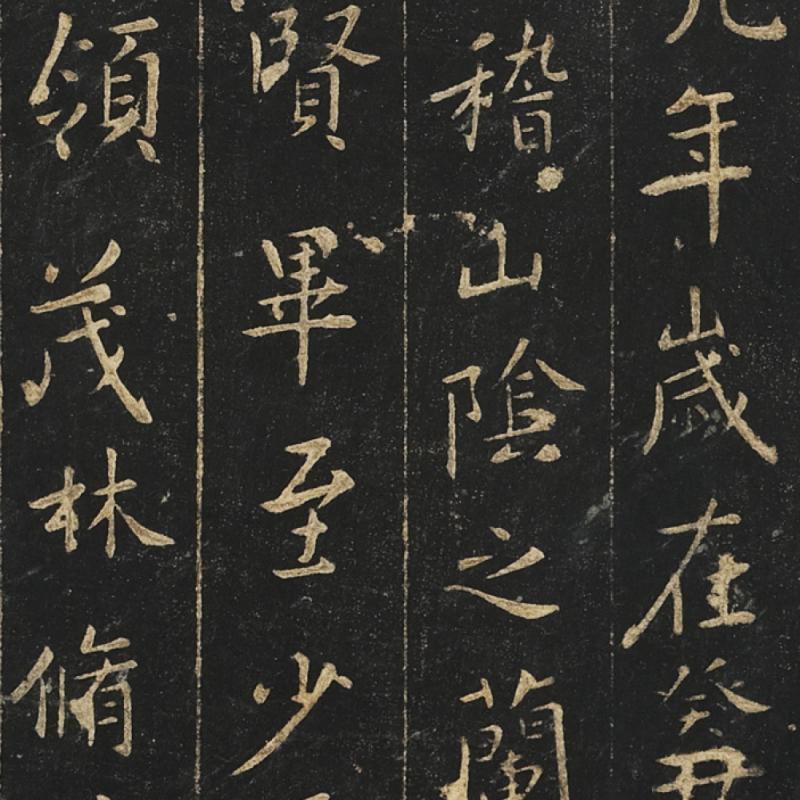 九年歲在癸丑
稽山陰之蘭
賢畢至少
領茂林脩